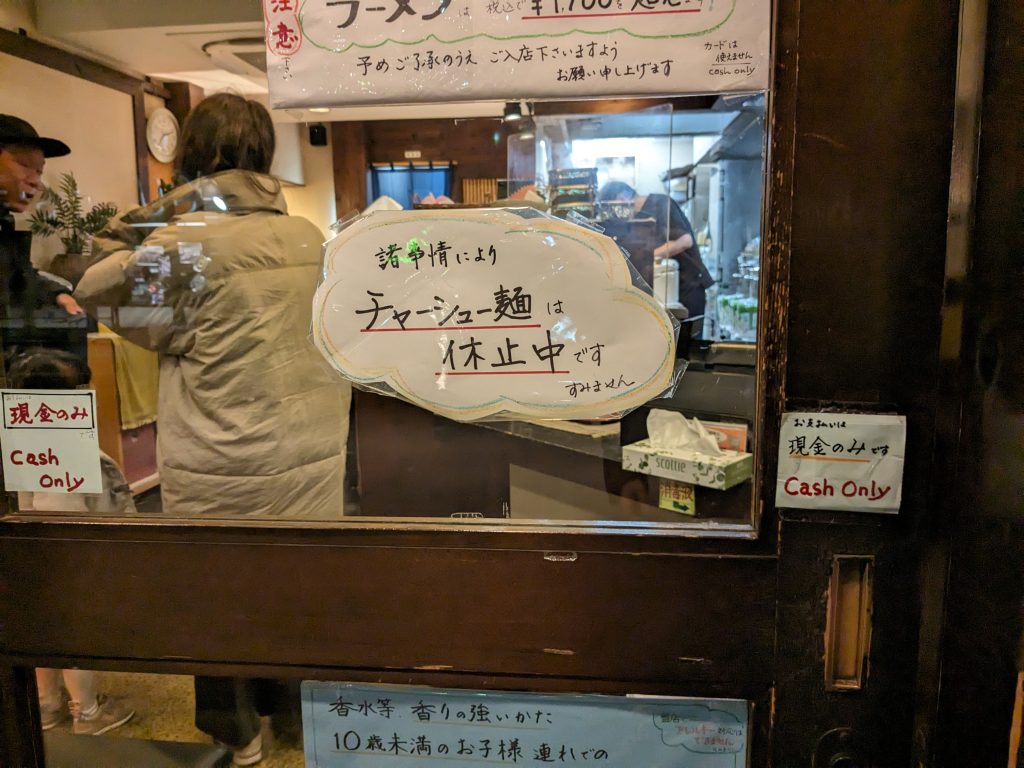 注意
下さい
ラーメン は 税込で ¥1,700を超えます
予めご了承のうえ ご入店下さいますよう
お願い申し上げます
カードは
使えません
cash only
諸事情により
チャーシュー麺は
休止中です
すみません
現金のみ
です
Cash
Only
お支払いは
現金のみです
Cash Only
scottie
消毒液
香水等、香りの強いかた
10歳未満のお子様連れでの
当店では
アレルギー対応は
できません